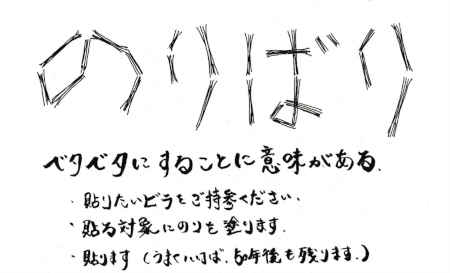 のりばり
ベタベタにすることに意味がある.
・貼りたいビラをご持参ください.
・貼る対象にのりを塗ります.
・貼ります (うまくいけば、50年後も残ります.)